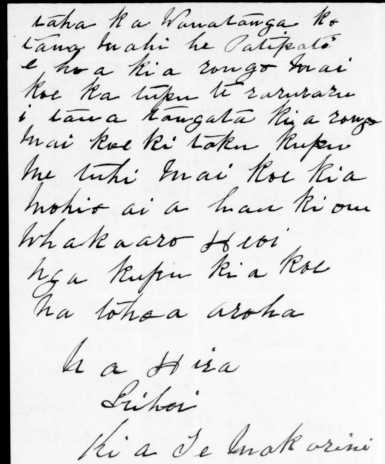 taha ka Wanatanga ko
tana mahi he Patipati
e hoa kia rongo mai
koe ka tupu te raruraru
i taua tangata kia rongo
mai koe ki taku kupu
me tuhi mai koe kia
mohio ai a hau ki ou
whakaaro Heoi
nga kupu kia koe
na tohoa aroha
Na Hira
Kia Te Makarini